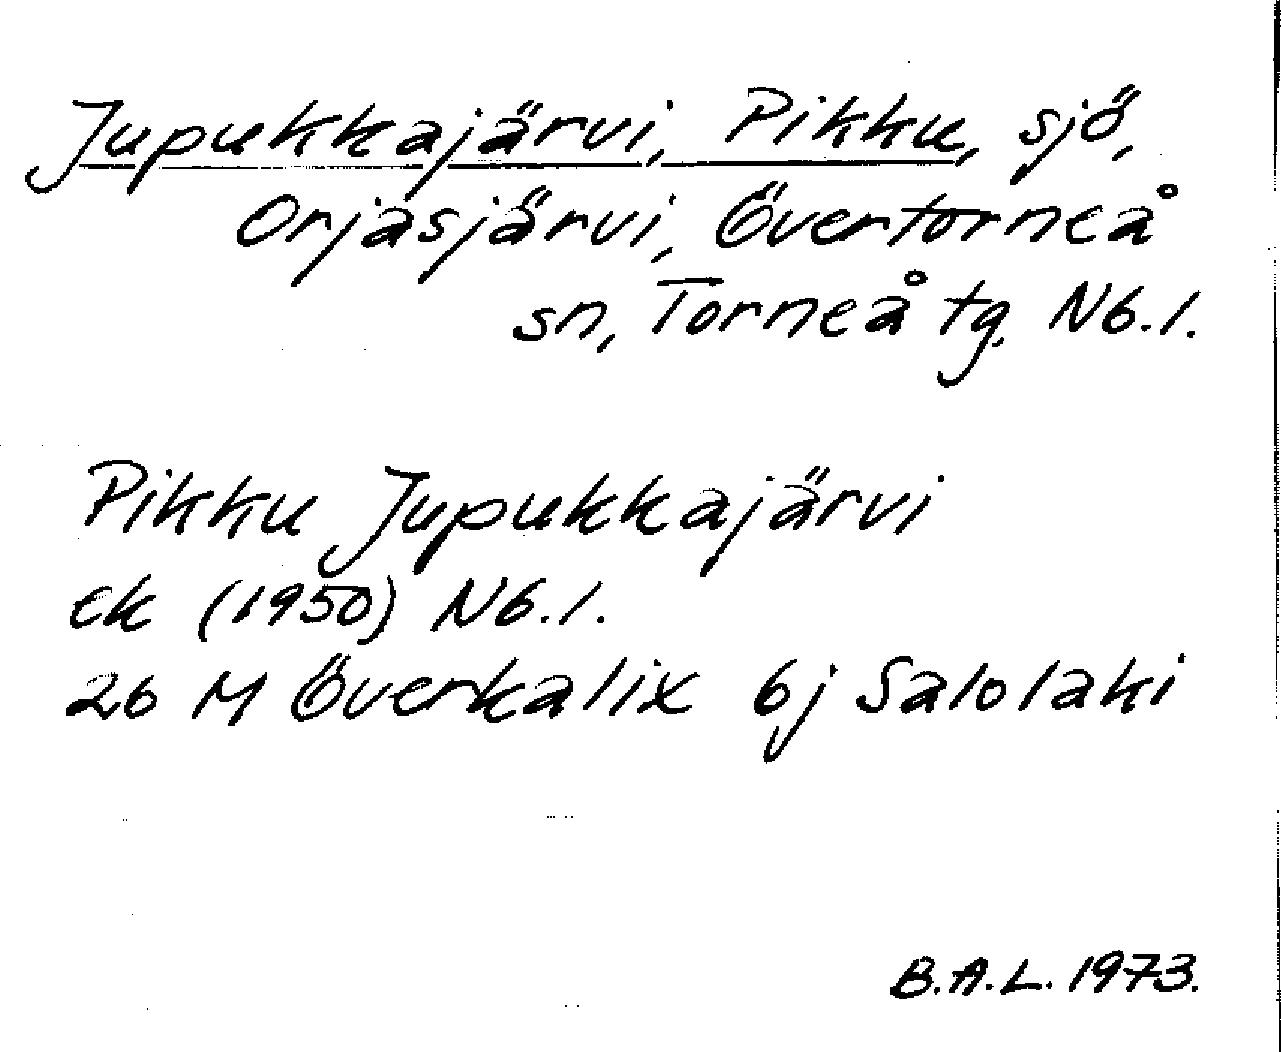 Jupukkajärvi, Pikku, sjö,
Orjasjärvi, Övertorneå
sn, Torneå tg. Nb.l.
Pikku Jupukkajärvi
ek (1950) Nb.l.
26 M Överkalix 6j Salolaki
B.A.L. 1973.